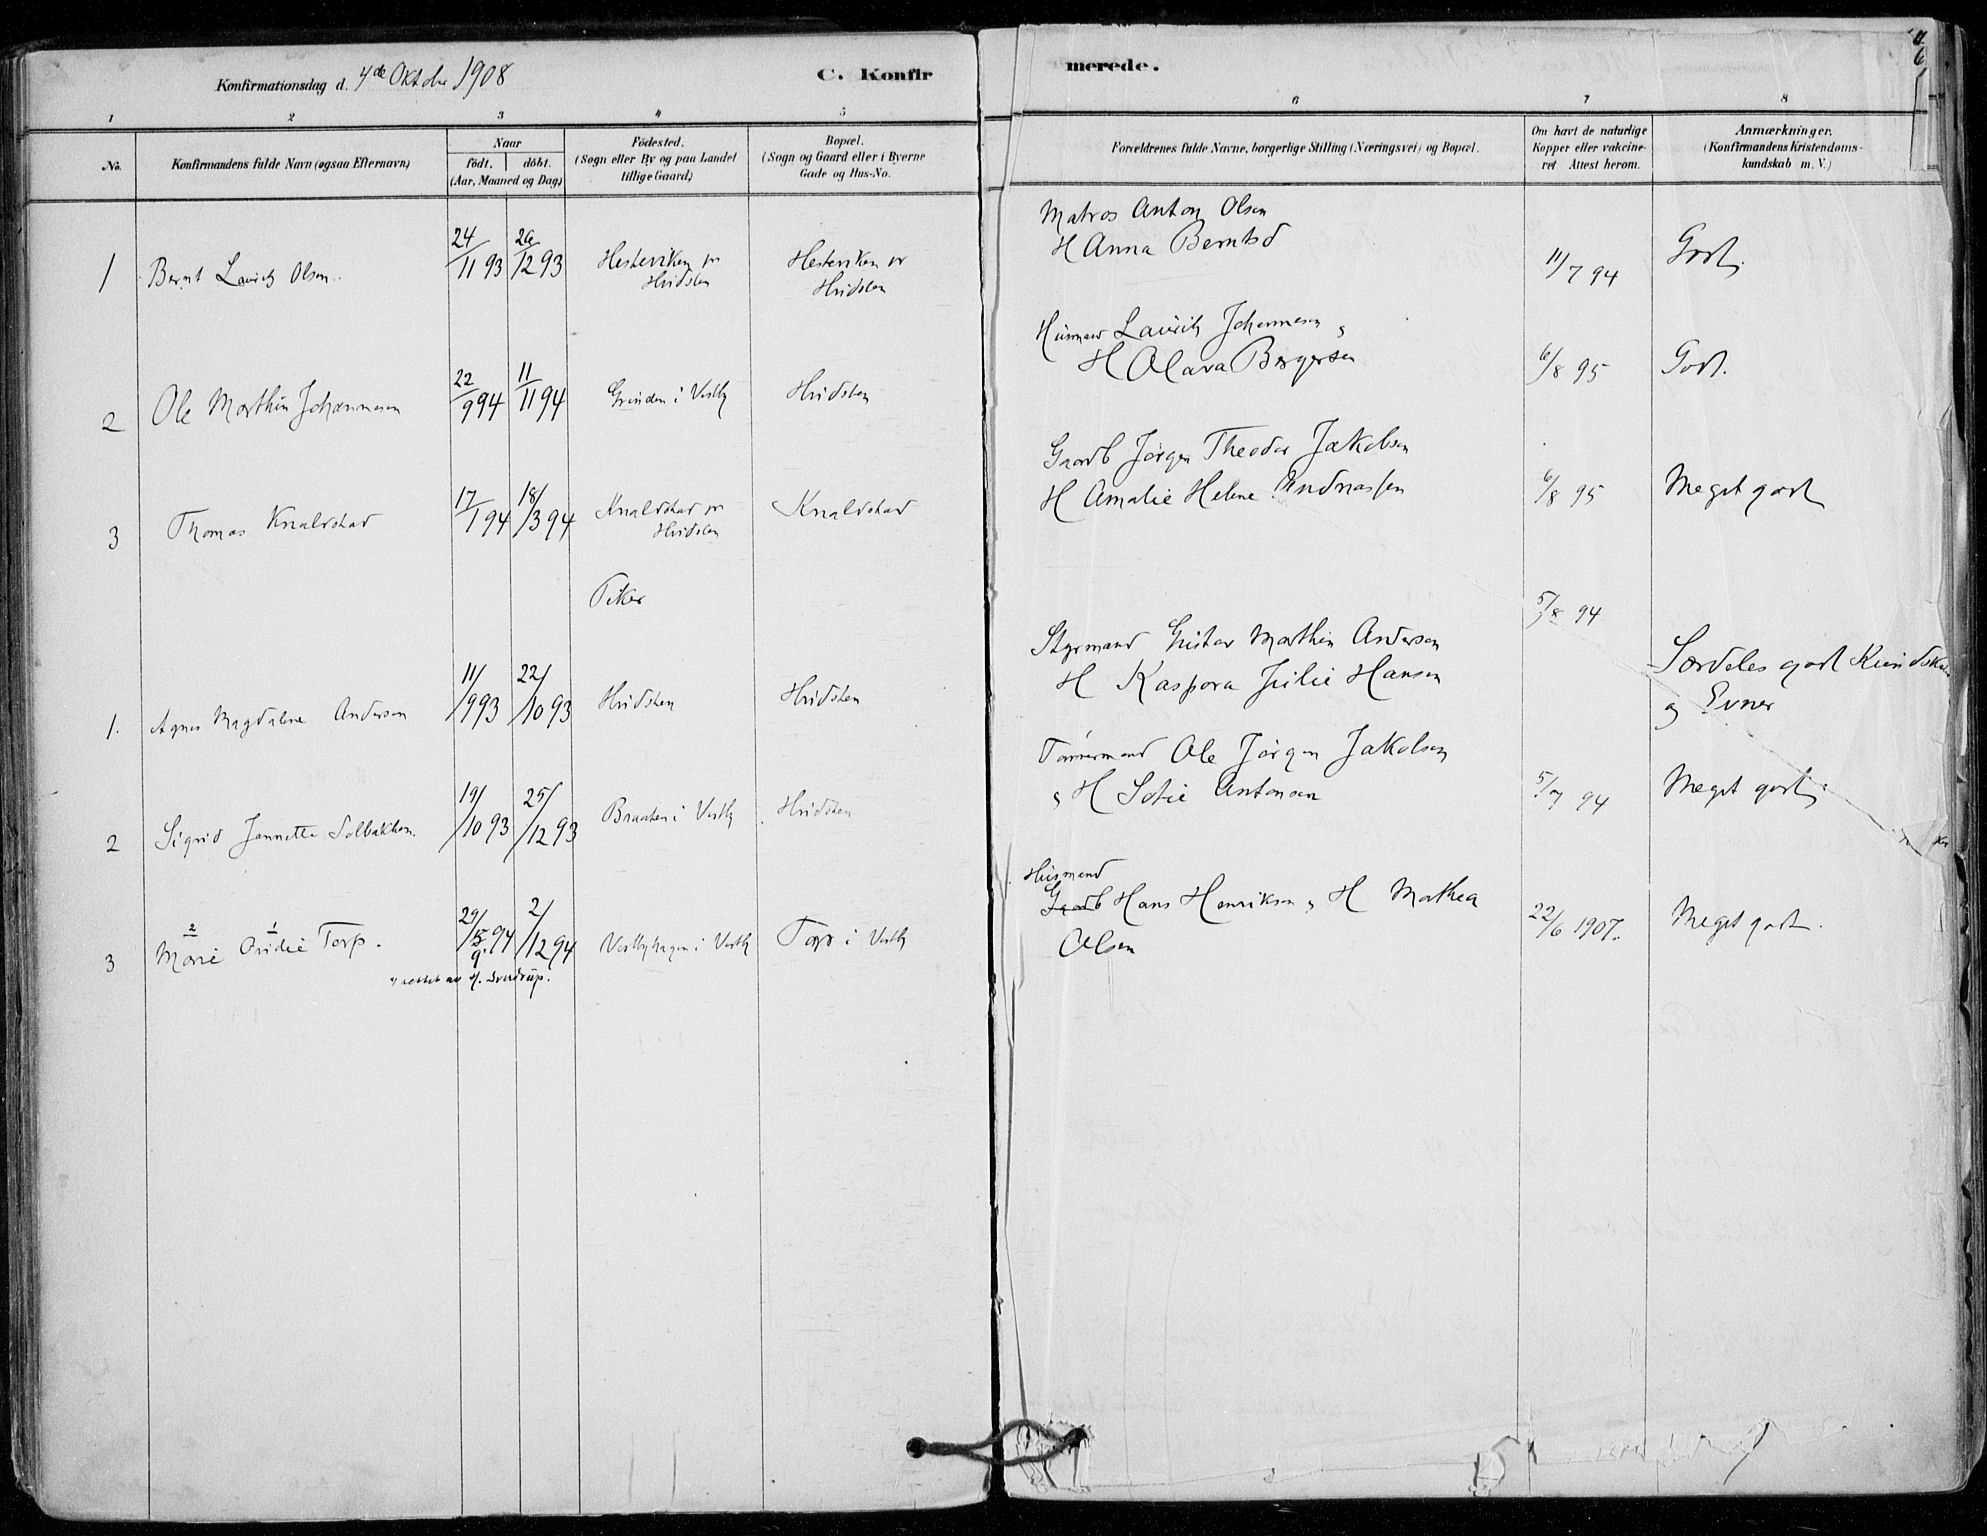 Konfirmationsdag d. 4de Oktober 1908
C. Konfirmerede.
1 2 3 4 5 6 7 8
No.
Konfirmandens fulde Navn (ogsaa Efternavn)
Naar
födt. döbt.
(Aar, Maaned og Dag)
Födested.
(Sogn eller By og paa Landet
tillige Gaard)
Bopæl.
(Sogn og Gaard eller i Byerne
Gade og Hus-No.
Forældrenes fulde Navne, borgerlige Stilling (Næringsvei) og Bopæl.
Om havt de naturlige
Kopper eller vakcine-
ret Attest herom.
Anmærkninger.
(Konfirmandens Kristendoms-
kundskab m. V.)
1 Bernt Lauritz Olsen. 24/11 93 26/12 93
Hesteviken pr
Hvidsten
Hesteviken pr
Hvidsten
Matros Anton Olsen
H Anna Berntsd
11/7 94
Godt.
2 Ole Marthin Johannesen 22/9 94 11/11 94 Grinden i Vestby Hvidsten
Husmand Lauritz Johannesen og
H Olava Bergersen
6/8 95
Godt.
3 Thomas Knaldstad 17/1 94 18/3 94
Knaldstad pr
Hvidsten
Knaldstad
Gaardb Jörgen Theodor Jakobsen
H Amalie Helene Andreassen
6/8 95
Meget godt
Piker
1. Agnes Magdalene Andersen 11/9 93 22/10 93 Hvidsten Hvidsten
Styrmand Gustav Marthin Andersen
H Kaspara Julie Hansen
5/8 94
Særdeles godt Kundskab
og Evner
2 Sigrid Jannette Solbakken. 19/10 93 25/12 93 Braaten i Vestby Hvidsten
Tömmermand Ole Jörgen Jakobsen
og H Sofie Antonsen
5/7 94
Meget godt.
2 1
3 Marie Ovidie Torp. 29/9 94 2/12 94 Vestbyhagen i Vestby Torp i Vestby
rettet av Sverdrup.
Husmand
Gaardb Hans Henriksen og H Mathea
Olsen
22/6 1907.
Meget godt.